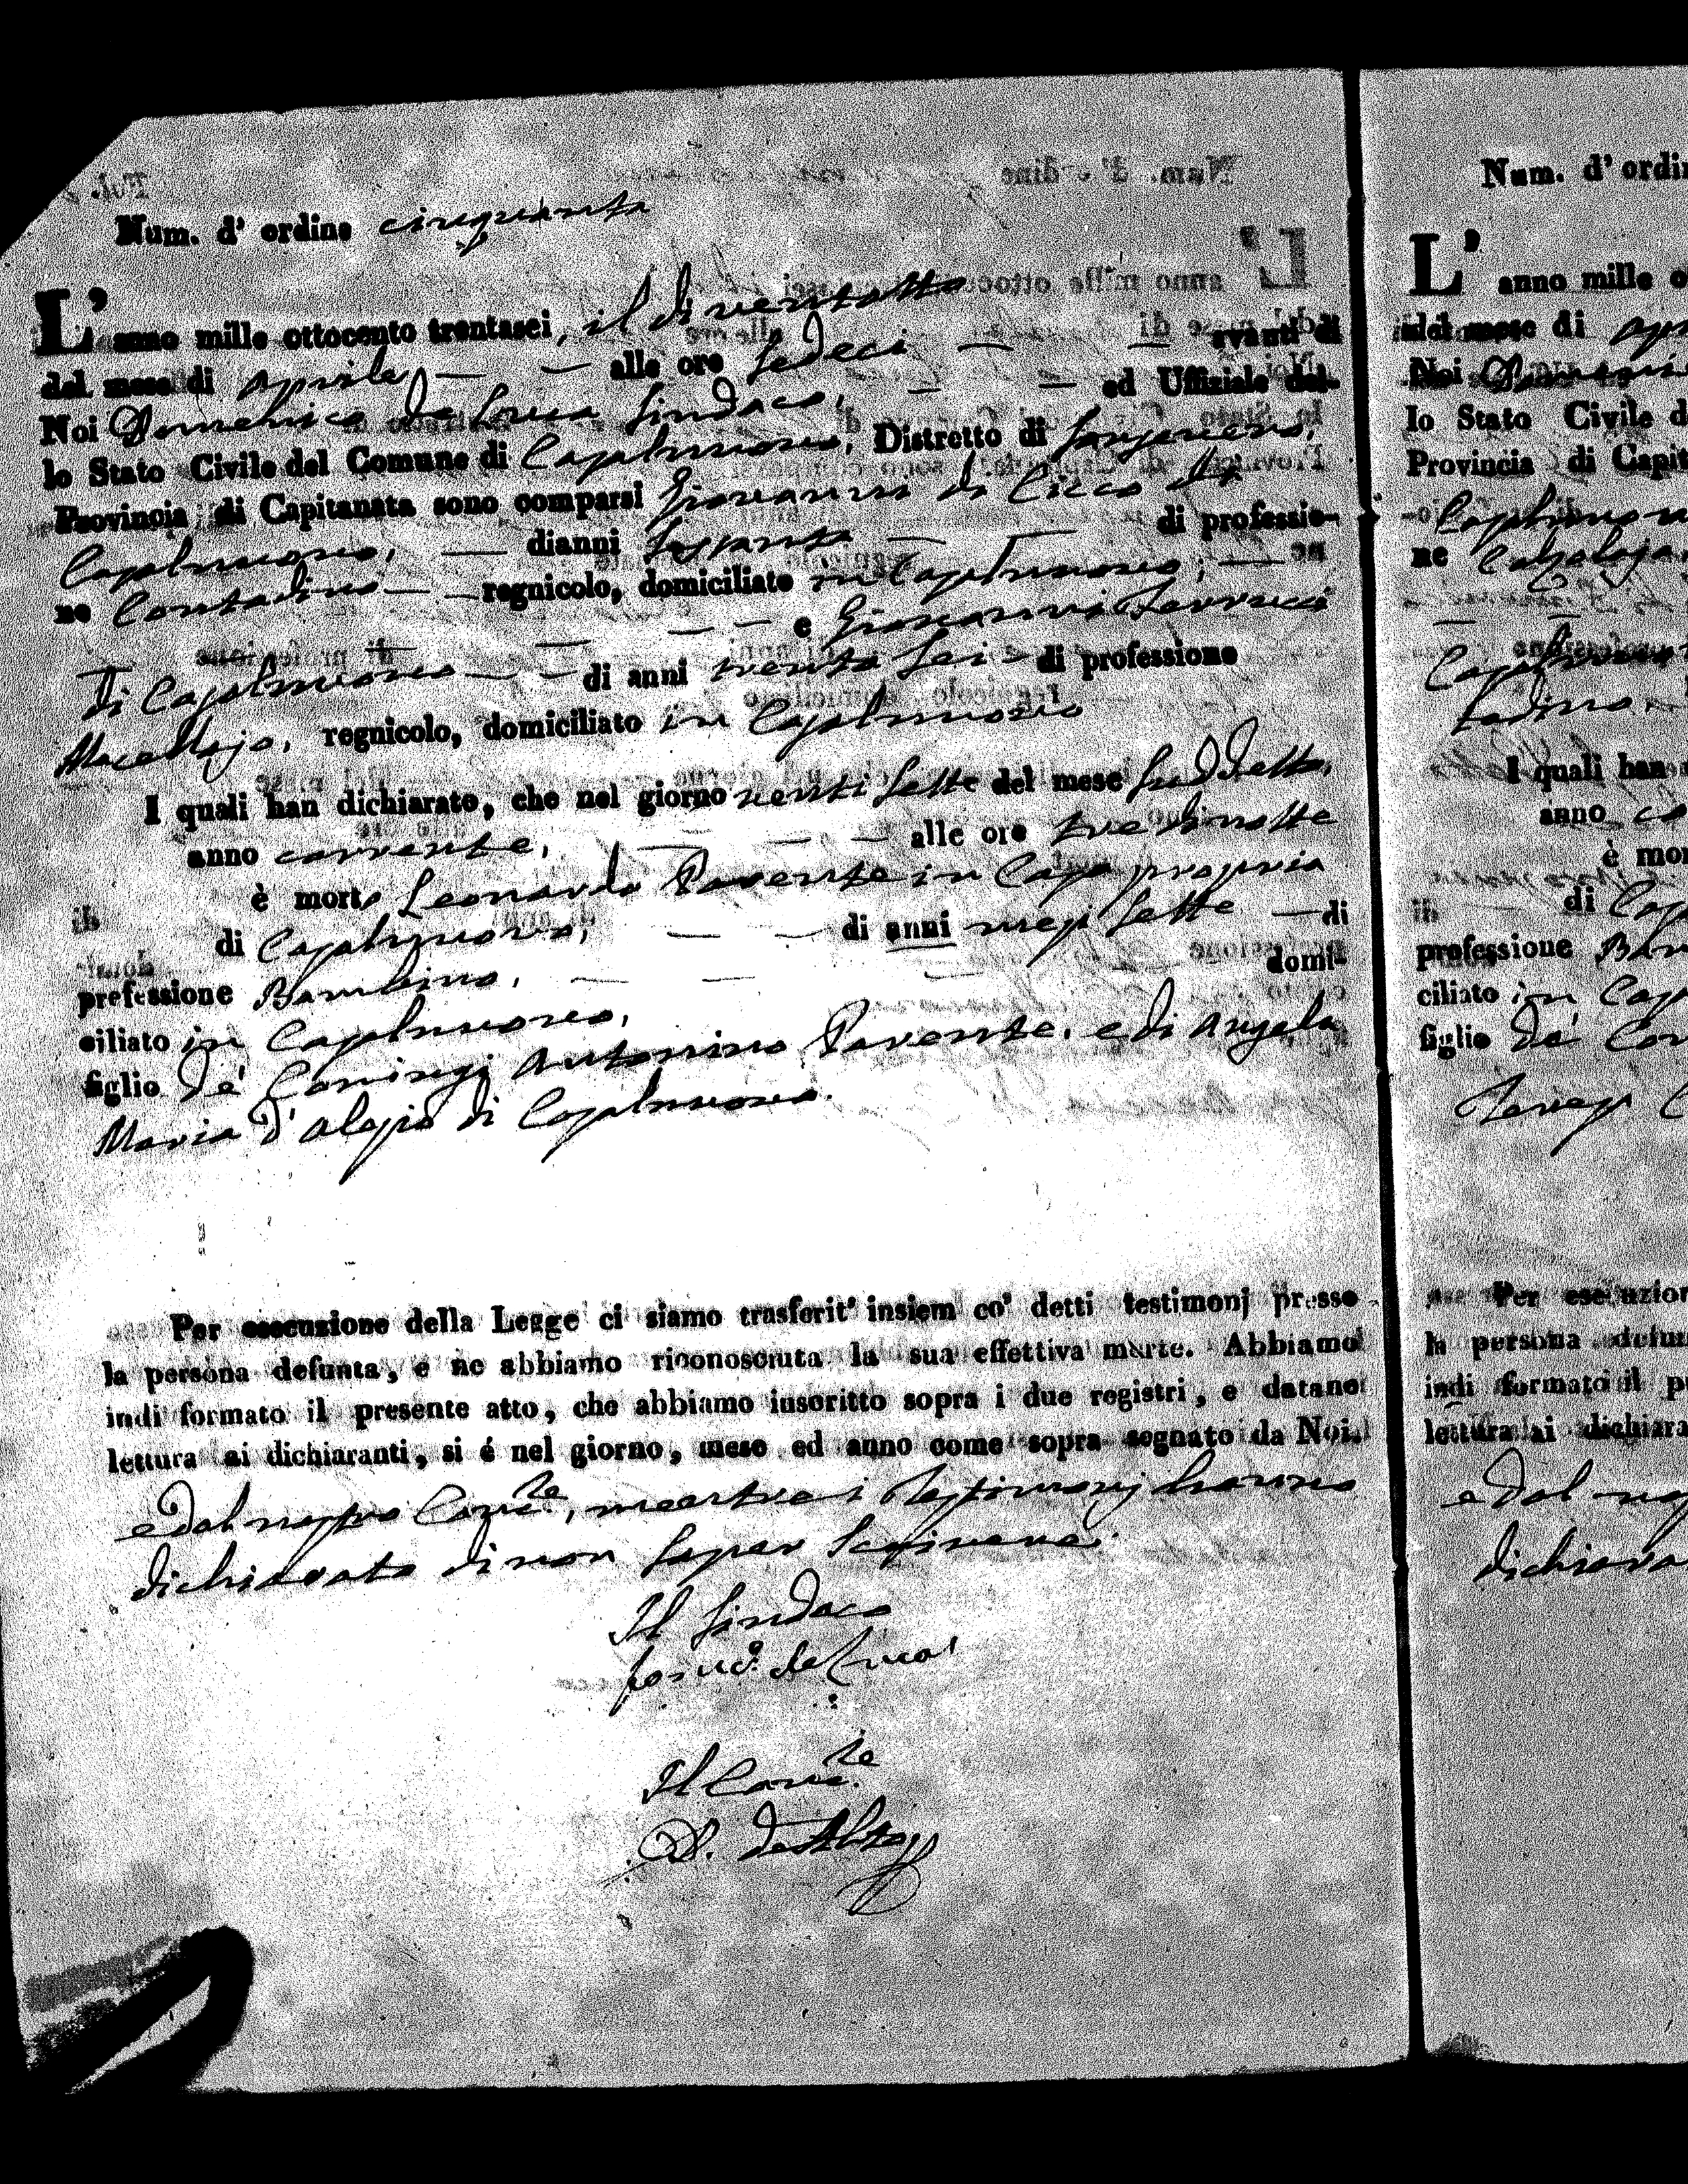 Num. d' ordine cinquanta
L' anno mille ottocento trentasei, il di ventotto
del mese di aprile, — — alle ore sedeci — — avanti di
Noi Domenico de Luca Sindaco, — — ed Uffiziale del-
lo Stato Civile del Comune di Casalnuovo, Distretto di Sansevero,
Provincia di Capitanata sono comparsi Giovanni di Cicco di
Casalnuovo, — dianni sessanta — — di professio-
ne Contadino — — regnicolo, domiciliato in Casalnuovo, —
— — — e Giovanni Ferrucci
di Casalnuovo — — di anni trenta sei — di professione
Macellajo, regnicolo, domiciliato in Casalnuovo
I quali han dichiarato, che nel giorno venti sette del mese suddetto,
anno corrente, — — — alle ore tre di notte
è morto Leonardo Parente in Casa propria
di Casalnuovo, — — di anni mesi sette — di
professione Bambino, — — — domi-
ciliato in Casalnuovo,
figlio de' Coniugi Antonino Parente, e di Angela
Maria d'Alesio di Casalnuovo.
Per esecuzione della Legge ci siamo trasferit' insiem co' detti testimonj presso
la persona defunta, e ne abbiamo riconosciuta la sua effettiva morte. Abbiamo
indi formato il presente atto, che abbiamo inscritto sopra i due registri, e datane
lettura ai dichiaranti, si é nel giorno, mese ed anno come sopra segnato da Noi.
e dal nostro Canc.re, mentre i Testimonj hanno
dichiarato di non saper scrivere.
Il Sindaco
de Luca
Il Canc.re
Num. d' ordin
L' anno mille o
del mese di apr
Noi Domenic
lo Stato Civile d
Provincia di Capit
Casalnuov
ne Calzolaja
Casalnuov
tadino,
I quali han
anno co
è mor
di Cas
professione Bam
ciliato in Cas
figlio de' Con
Teresa C
Per esecuzion
la persona defun
indi formato il p
lettura ai dichiara
e dal nos
dichiara